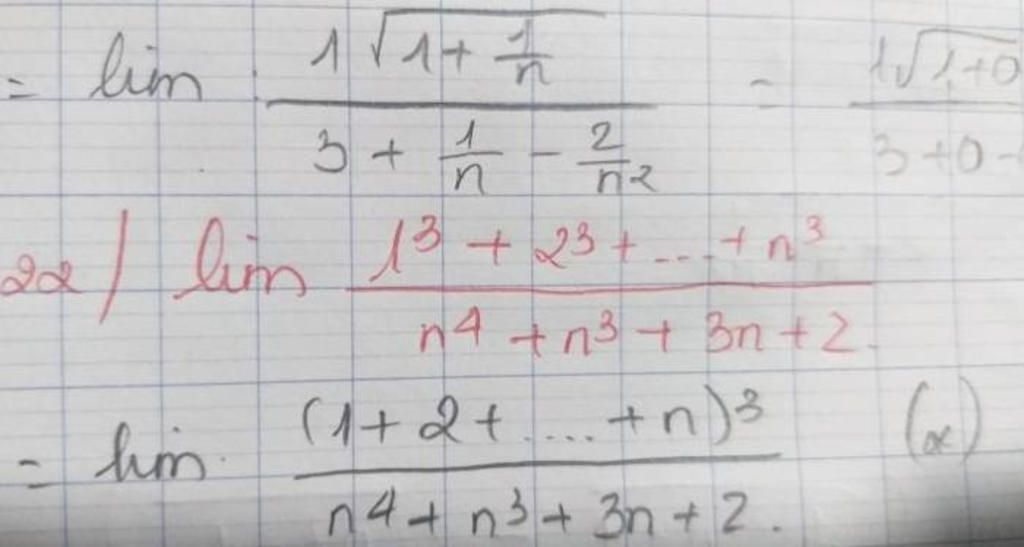 = lim \frac{1\sqrt{1+\frac{1}{n}}}{3+\frac{1}{n}-\frac{2}{n^2}} = \frac{1\sqrt{1+0}}{3+0-}
22/ lim \frac{1^3+2^3+...+n^3}{n^4+n^3+3n+2}
= lim \frac{(1+2+....+n)^3}{n^4+n^3+3n+2.}